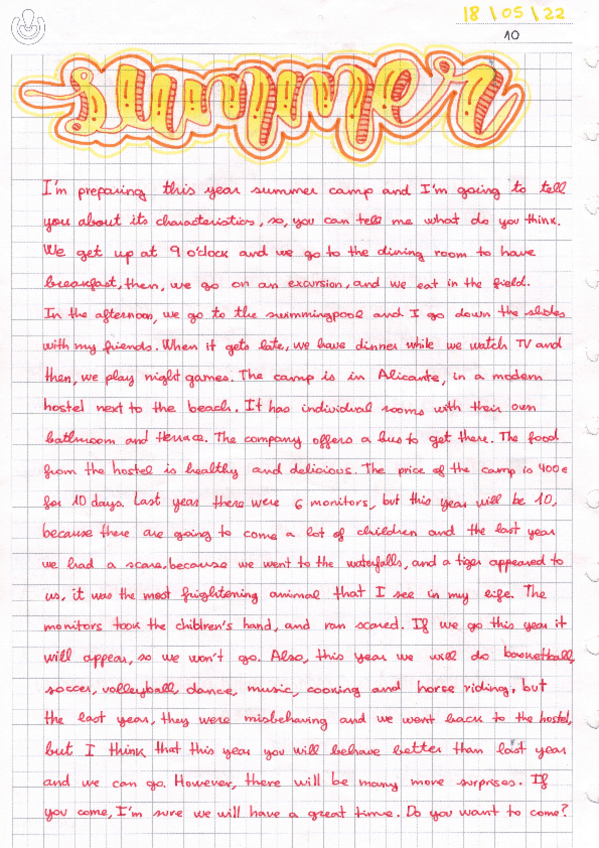 18 \ 05 \ 22
10
summer
I'm preparing this year summer camp and I'm going to tell
you about its characteristics, so, you can tell me what do you think.
We get up at 9 o'clock and we go to the dining room to have
breakfast, then, we go on an excursion, and we eat in the field.
In the afternoon, we go to the swimmingpool and I go down the slides
with my friends. When it gets late, we have dinner while we watch TV and
then, we play night games. The camp is in Alicante, in a modern
hostel next to the beach. It has individual rooms with their own
bathroom and terrace. The company offers a bus to get there. The food
from the hostel is healthy and delicious. The price of the camp is 400€
for 10 days. Last year there were 6 monitors, but this year will be 10,
because there are going to come a lot of children and the last year
we had a scare, because we went to the waterfalls, and a tiger appeared to
us, it was the most frightening animal that I see in my life. The
monitors took the children's hand, and ran scared. If we go this year it
will appear, so we won't go. Also, this year we will do basketball,
soccer, volleyball, dance, music, cooking and horse riding, but
the last year, they were misbehaving and we went back to the hostel,
but I think that this year you will behave better than last year
and we can go. However, there will be many more surprises. If
you come, I'm sure we will have a great time. Do you want to come?